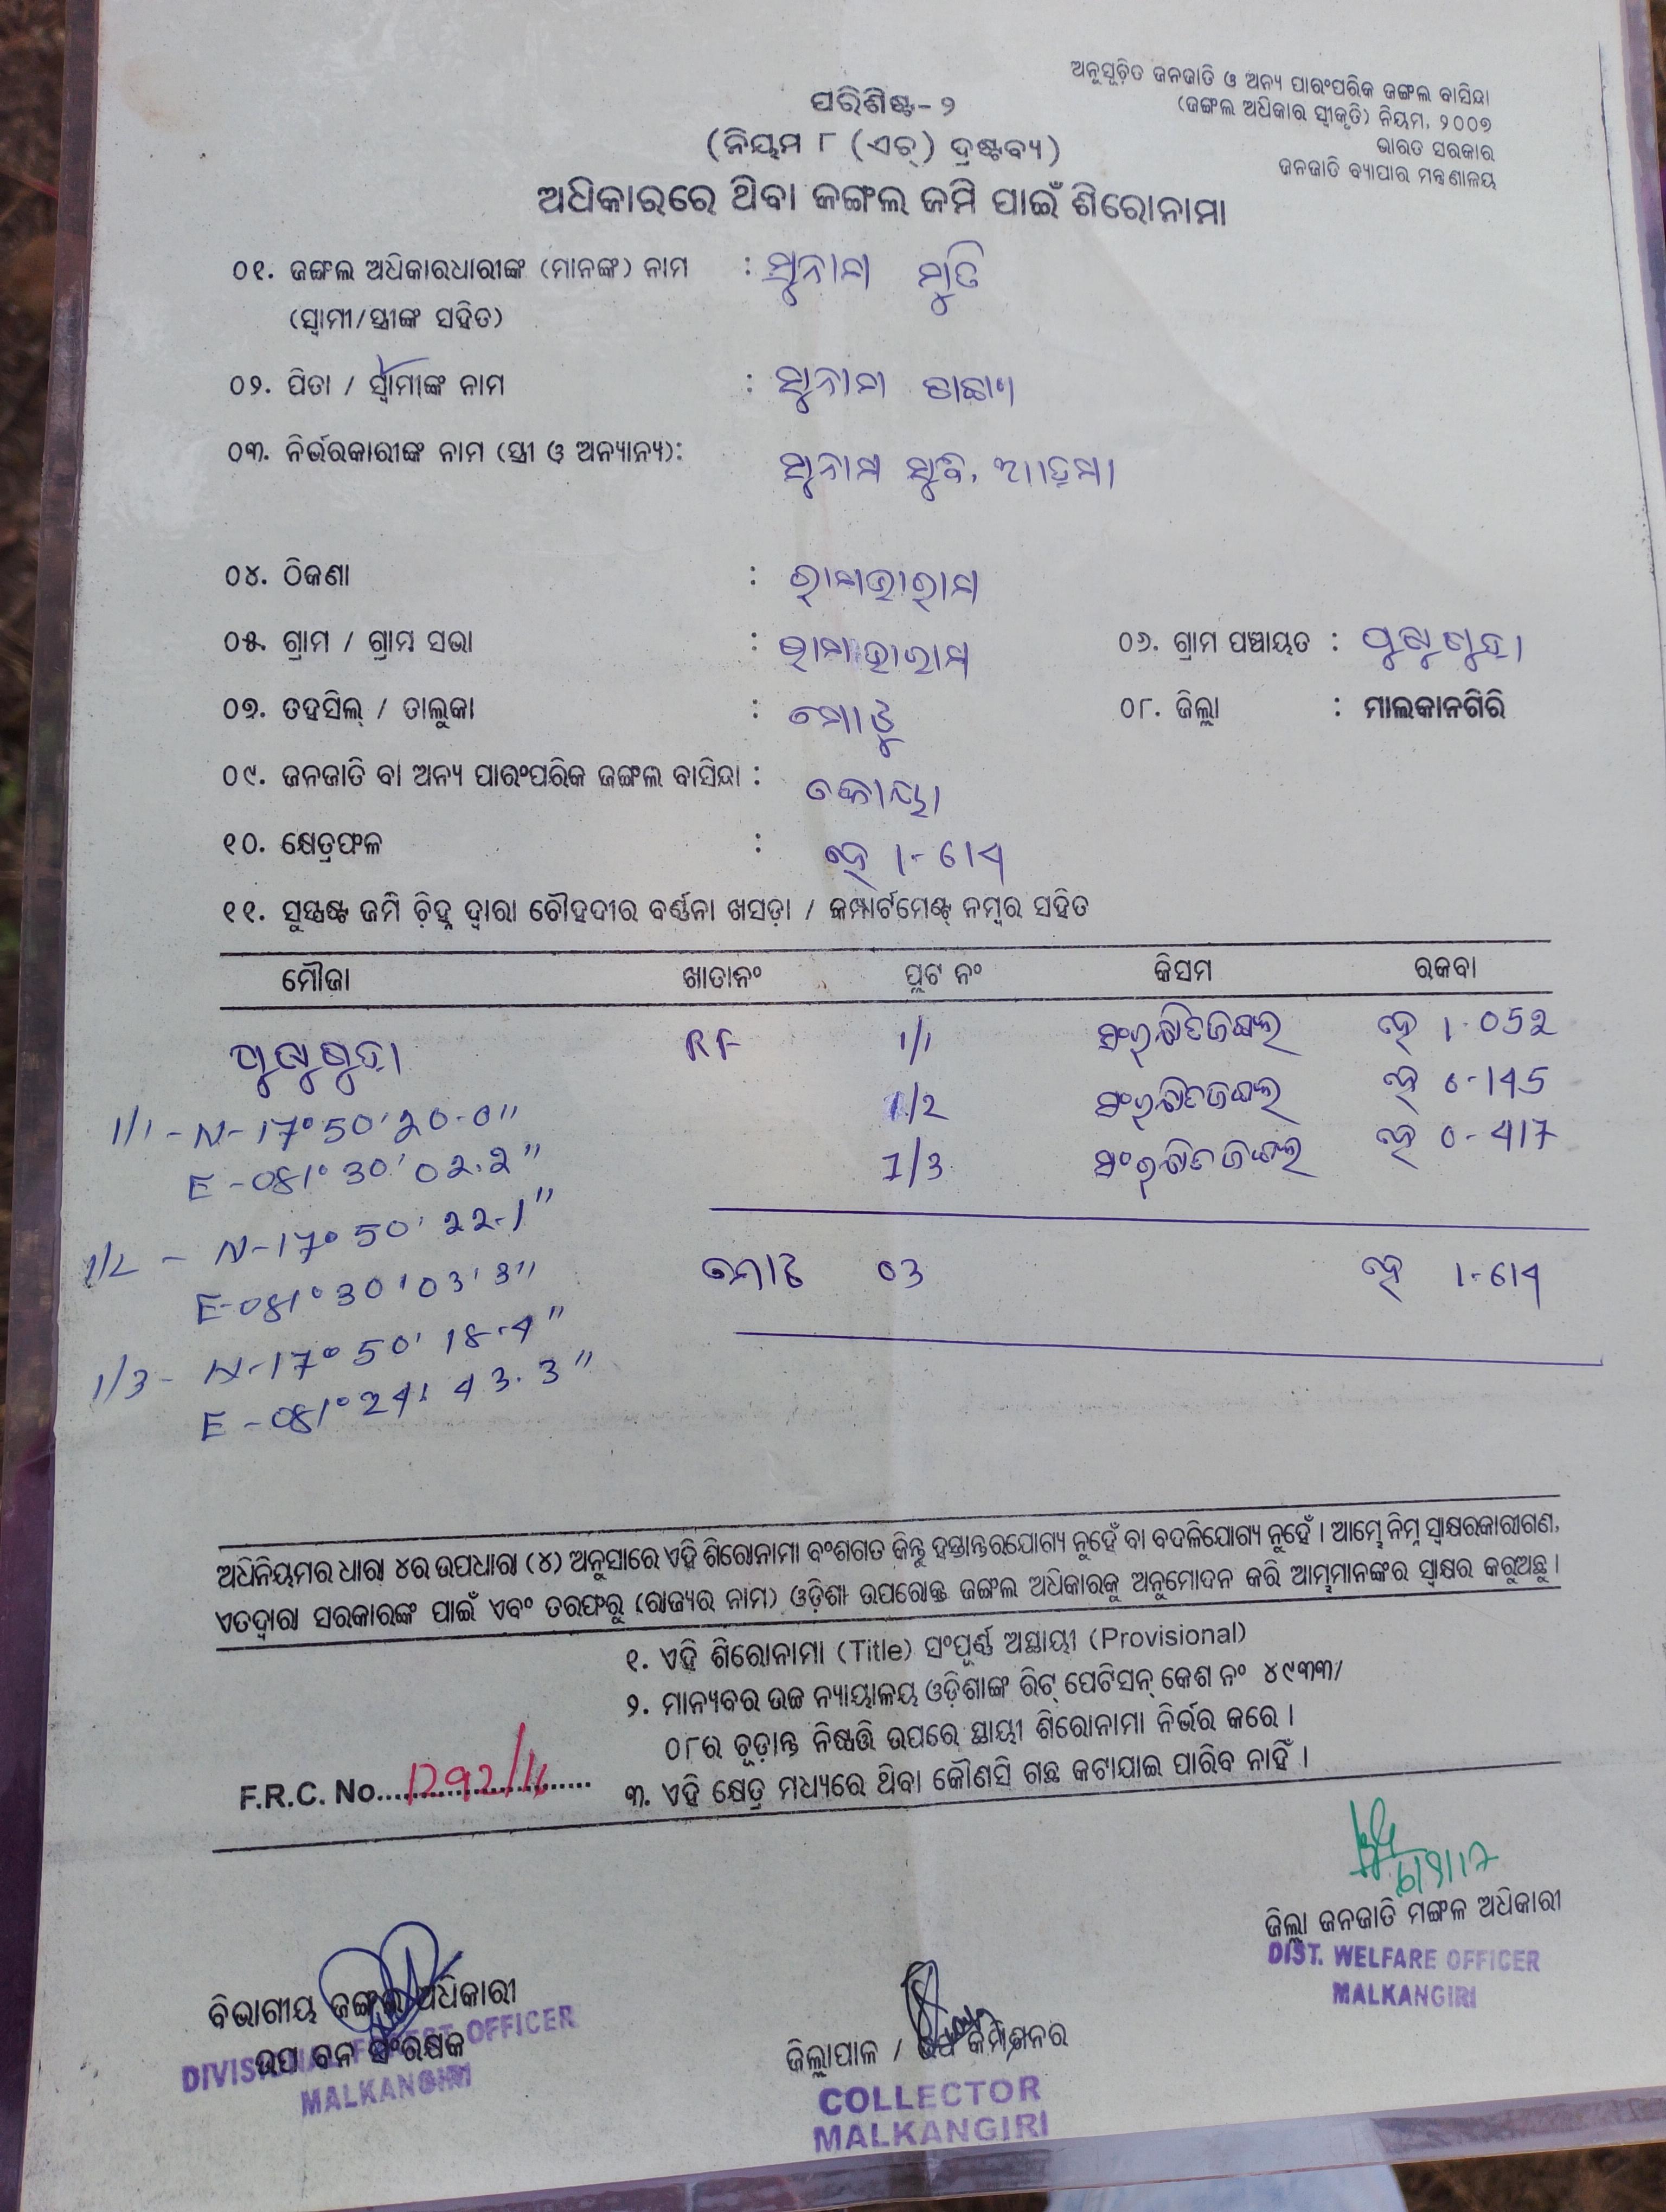 ଅନୁସୂଚିତ ଜନଜାତି ଓ ଅନ୍ୟ ପାରଂପରିକ ଜଙ୍ଗଲ ବାସିନ୍ଦା
(ଜଙ୍ଗଲ ଅଧିକାର ସ୍ୱୀକୃତି) ନିୟମ, ୨୦୦୭
ଭାରତ ସରକାର
ଜନଜାତି ବ୍ୟାପାର ମନ୍ତ୍ରଣାଳୟ
ପରିଶିଷ୍ଟ- ୨
(ନିୟମ ୮ (ଏଚ୍) ଦ୍ରଷ୍ଟବ୍ୟ)
ଅଧିକାରରେ ଥିବା ଜଙ୍ଗଲ ଜମି ପାଇଁ ଶିରୋନାମା
୦୧. ଜଙ୍ଗଲ ଅଧିକାରଧାରୀଙ୍କ (ମାନଙ୍କ) ନାମ :
(ସ୍ୱାମୀ/ସ୍ତ୍ରୀଙ୍କ ସହିତ)
୦୨. ପିତା / ସ୍ୱାମୀଙ୍କ ନାମ :
୦୩. ନିର୍ଭରକାରୀଙ୍କ ନାମ (ସ୍ତ୍ରୀ ଓ ଅନ୍ୟାନ୍ୟ):
୦୪. ଠିକଣା :
୦୫. ଗ୍ରାମ / ଗ୍ରାମ ସଭା : ୦୬. ଗ୍ରାମ ପଞ୍ଚାୟତ :
୦୭. ତହସିଲ୍ / ତାଲୁକା : ମୋଟୁ ୦୮. ଜିଲ୍ଲା : ମାଲକାନଗିରି
୦୯. ଜନଜାତି ବା ଅନ୍ୟ ପାରଂପରିକ ଜଙ୍ଗଲ ବାସିନ୍ଦା : କୋୟା
୧୦. କ୍ଷେତ୍ରଫଳ : ହେ 1-614
୧୧. ସୁସ୍ପଷ୍ଟ ଜମି ଚିହ୍ନ ଦ୍ୱାରା ଚୌହଦୀର ବର୍ଣ୍ଣନା ଖସଡ଼ା / କମ୍ପାର୍ଟମେଣ୍ଟ୍ ନମ୍ବର ସହିତ
ମୌଜା ଖାତାନଂ ପ୍ଲଟ ନଂ କିସମ ରକବା
RF 1/1 ସଂରକ୍ଷିତଜଙ୍ଗଲ ହେ 1-052
1/2 ସଂରକ୍ଷିତଜଙ୍ଗଲ ହେ 0-145
1/3 ସଂରକ୍ଷିତଜଙ୍ଗଲ ହେ 0-417
1/1 - N-17° 50' 20-0"
E-081° 30' 02.2"
1/2 - N-17° 50' 22-1"
E-081° 30' 03' 3"
1/3 - N-17° 50' 18-4"
E-081° 24' 43.3"
ମୋଟ 03 ହେ 1-614
ଅଧିନିୟମର ଧାରା ୪ର ଉପଧାରା (୪) ଅନୁସାରେ ଏହି ଶିରୋନାମା ବଂଶଗତ କିନ୍ତୁ ହସ୍ତାନ୍ତରଯୋଗ୍ୟ ନୁହେଁ ବା ବଦଳିଯୋଗ୍ୟ ନୁହେଁ । ଆମ୍ଭେ ନିମ୍ନ ସ୍ୱାକ୍ଷରକାରୀଗଣ,
ଏତଦ୍ୱାରା ସରକାରଙ୍କ ପାଇଁ ଏବଂ ତରଫରୁ (ରାଜ୍ୟର ନାମ) ଓଡ଼ିଶା ଉପରୋକ୍ତ ଜଙ୍ଗଲ ଅଧିକାରକୁ ଅନୁମୋଦନ କରି ଆମ୍ଭମାନଙ୍କର ସ୍ୱାକ୍ଷର କରୁଅଛୁ ।
୧. ଏହି ଶିରୋନାମା (Title) ସଂପୂର୍ଣ୍ଣ ଅସ୍ଥାୟୀ (Provisional)
୨. ମାନ୍ୟବର ଉଚ୍ଚ ନ୍ୟାୟାଳୟ ଓଡ଼ିଶାଙ୍କ ରିଟ୍ ପେଟିସନ୍ କେଶ ନଂ ୪୯୩୩/
୦୮ର ଚୂଡ଼ାନ୍ତ ନିଷ୍ପତ୍ତି ଉପରେ ସ୍ଥାୟୀ ଶିରୋନାମା ନିର୍ଭର କରେ ।
୩. ଏହି କ୍ଷେତ୍ର ମଧ୍ୟରେ ଥିବା କୌଣସି ଗଛ କଟାଯାଇ ପାରିବ ନାହିଁ ।
F.R.C. No.
ଜିଲ୍ଲା ଜନଜାତି ମଙ୍ଗଳ ଅଧିକାରୀ
DIST. WELFARE OFFICER
MALKANGIRI
ବିଭାଗୀୟ ଜଙ୍ଗଲ ଅଧିକାରୀ
ଉପ ବନ ସଂରକ୍ଷକ
DIVISIONAL FOREST OFFICER
MALKANGIRI
ଜିଲ୍ଲାପାଳ / ଉପ କମିଶନର
COLLECTOR
MALKANGIRI